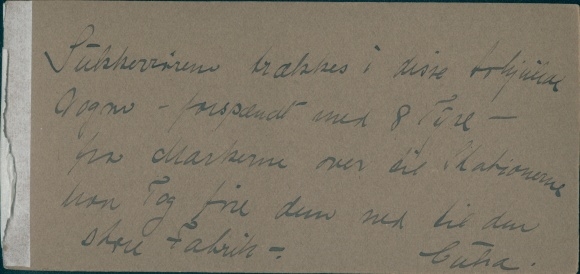 Sukkerrørene trækkes i disse tohjulede
Vogne - forspændt med 8 Tyre -
fra Markerne over til Stationerne
hvor Tog føre dem ned til den
store Fabrik -. Cuba.